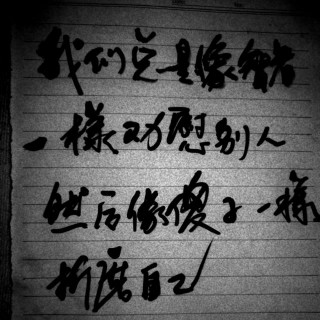 我们总是像智者
一様劝慰别人
然后像傻子一様
折磨自己